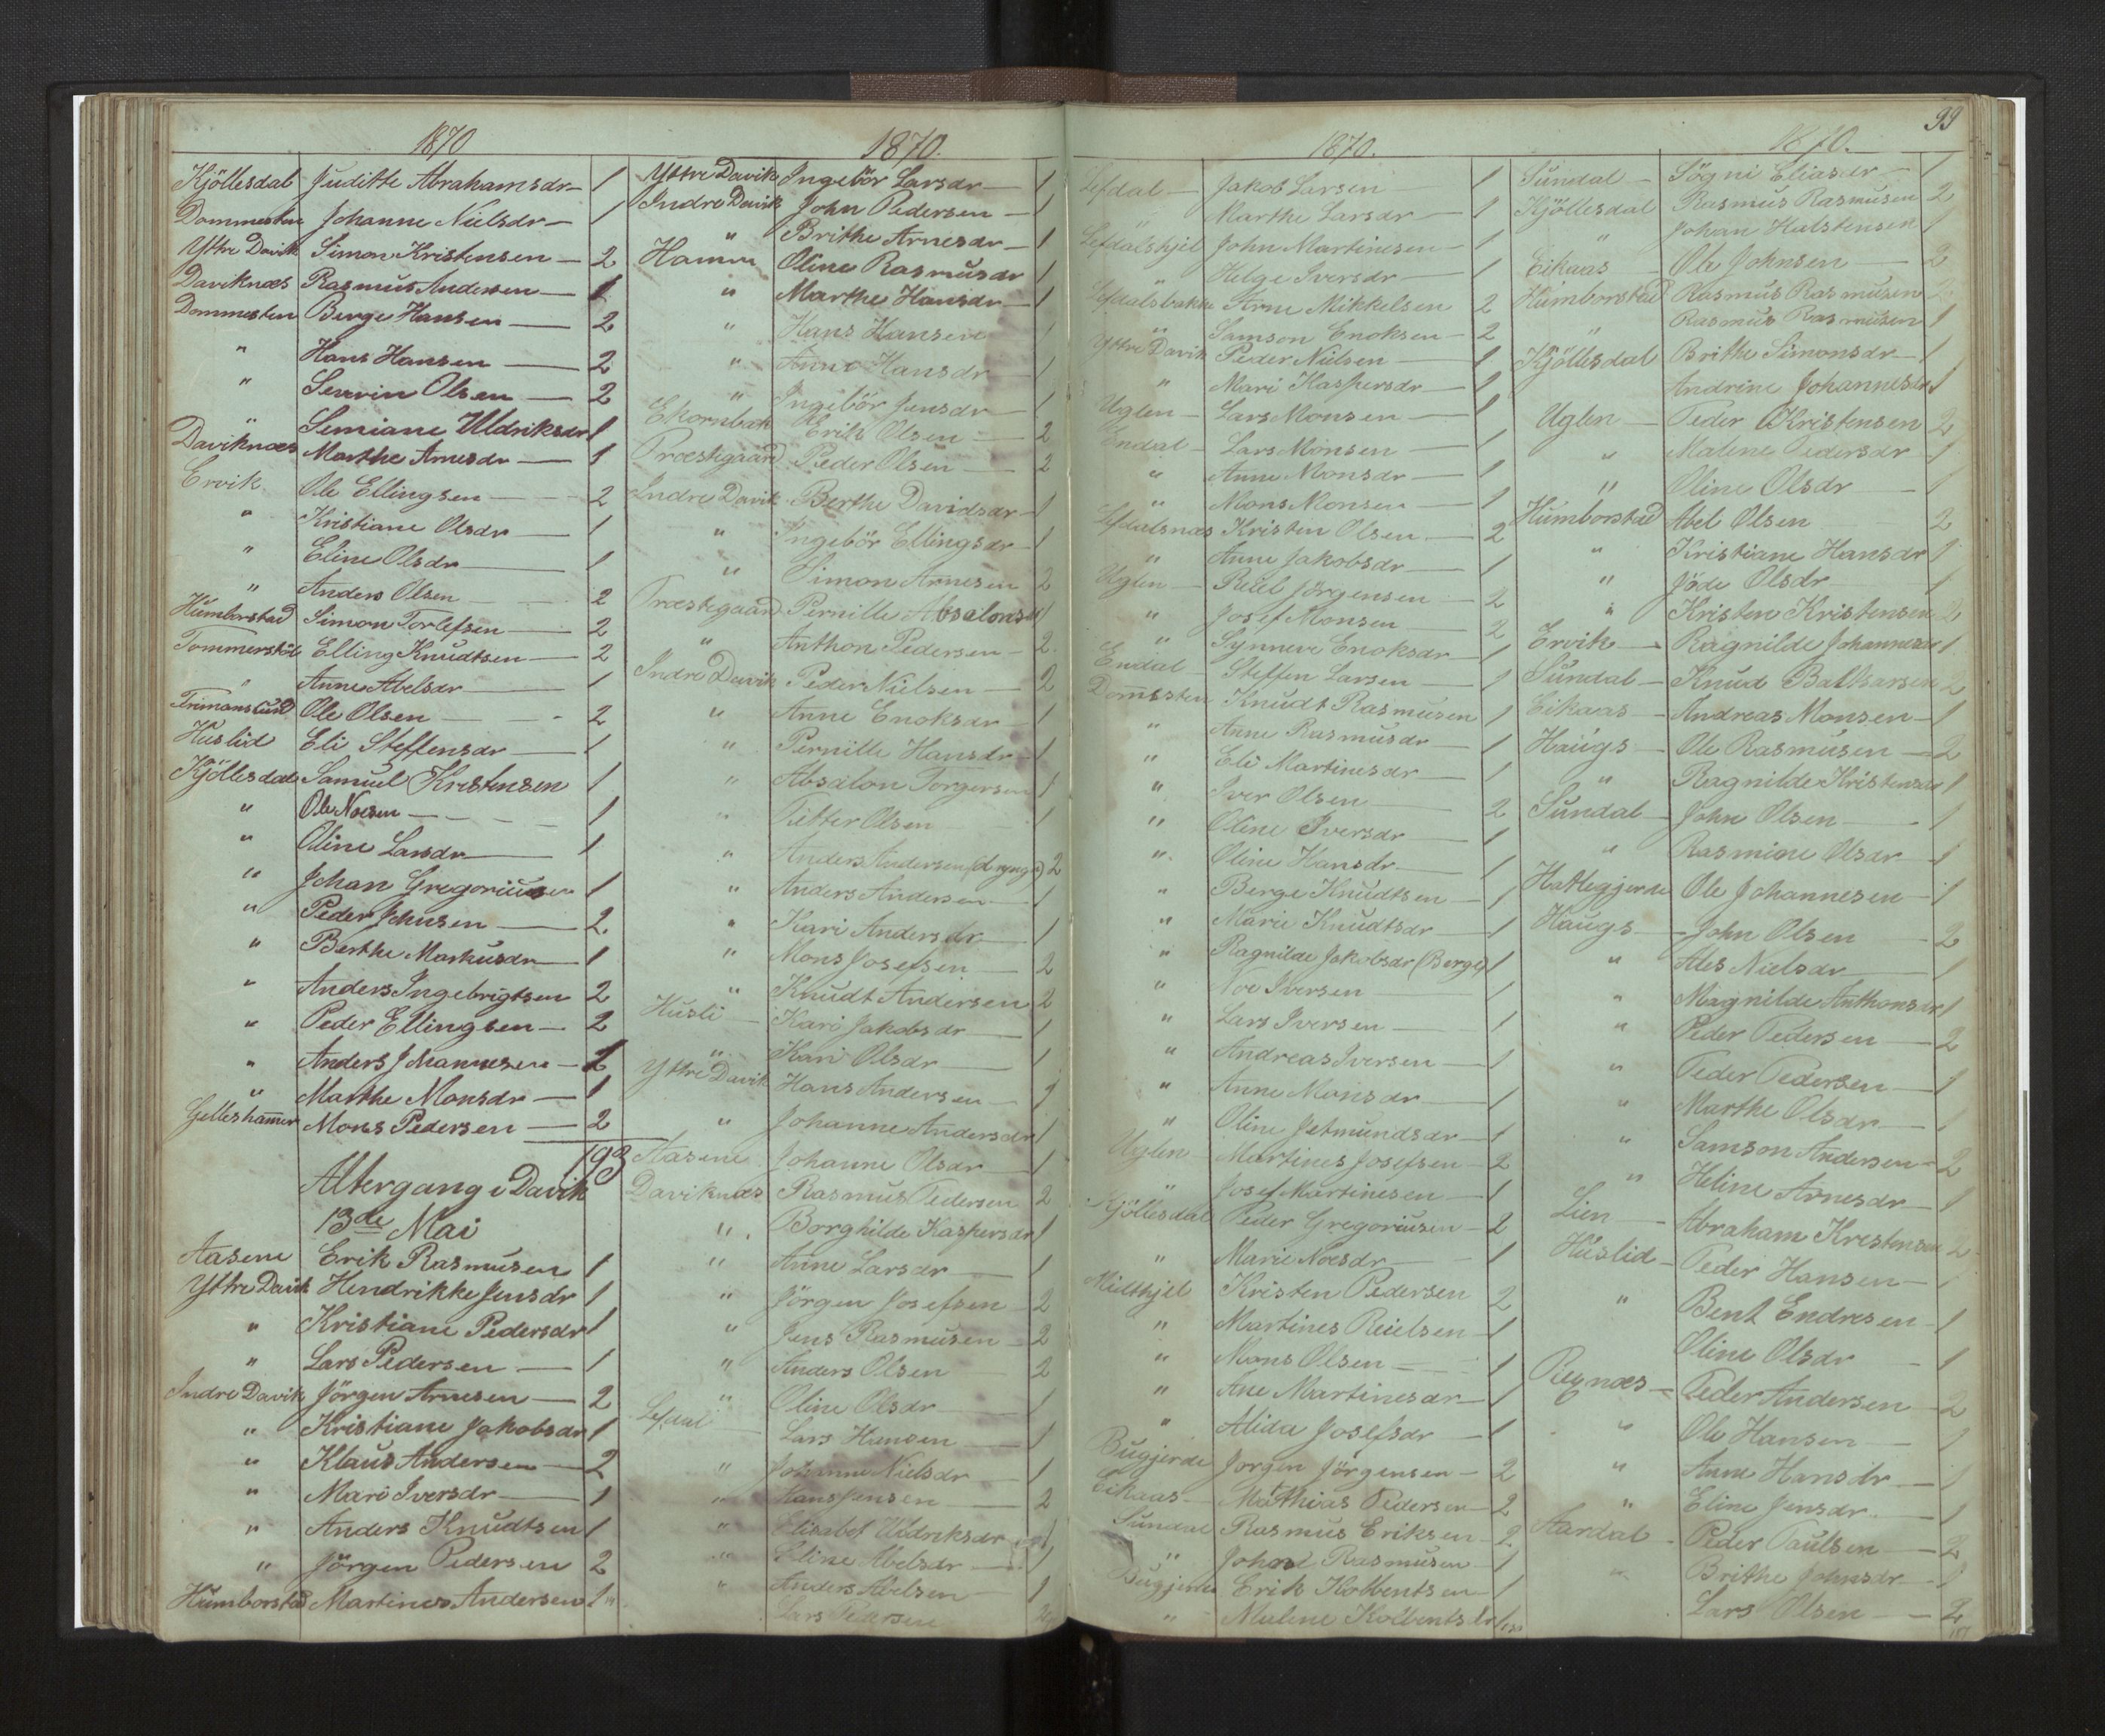 1870
Kjöllesdal Juditte Abrahamsdr 1
Dommesten Johanne Nielsdr 1
Yttre Davik Simon Kristensen 2
Daviknæs Rasmus Andersen 1
Dommesten Berge Hansen 2
" Hans Hansen 2
" Severin Olsen 2
" Semiane Uldriksdr 1
Daviknæs Marthe Arnesdr 1
Ervik Ole Ellingsen 2
" Kristiane Olsdr 1
" Eline Olsdr 1
" Anders Olsen 2
Humborstad Simon Torlefsen 2
Tommerstöl Elling Knudtsen 2
" Anne Abelsdr 1
Ole Olsen 2
Huslid Eli Steffensdr 1
Kjöllesdal Samuel Kristensen 1
" Ole Noesen 1
" Oline Larsdr 1
" Johan Gregoriusen 1
" Peder Johnsen 2
" Berthe Markusdr 1
" Anders Ingebrigtsen 2
" Peder Ellingsen 2
" Anders Johannesen 1
" Marthe Monsdr 1
Gelleshamer Mons Pedersen 2
193
Altergang i Davik
13de Mai
Aasene Erik Rasmusen 1
Yttre Davik Hendrikke Jensdr 1
" Kristiane Pedersdr 1
" Lars Pedersen 1
Indre Davik Jörgen Arnesen 2
" Kristiane Jakobsdr 1
" Klaus Andersen 2
" Mari Iversdr 1
" Anders Knudtsen 1
" Jörgen Pedersen 2
Humborstad Martines Andersen 1
1870.
Yttre Davik Ingebör Larsdr 1
Indre Davik John Pedersen 1
" Brithe Arnesdr 1
Hamn Oline Rasmusdr 1
" Marthe Hansdr 1
" Hans Hansen 1
" Anne Hansdr 1
" Ingebör Jensdr 1
Ekornbak Erik Olsen 2
Præstegaard Peder Olsen 2
Indre Davik Berthe Davidsdr 1
" Ingebör Ellingsdr 1
" Simon Arnesen 2
Præstegaard Pernille Absalonsdr 1
" Anthon Pedersen 2
Indre Davik Peder Nielsen 2
" Anne Enoksdr 1
" Pernille Hansdr 1
" Absalon Torgersen 1
" Olsen 1
" Anders Andersen (d yngr) 2
" Anders Andersen 1
" Kari Andersdr 1
" Mons Josefsen 2
" Knudt Andersen 2
Husli Kari Jakobsdr 1
" Kari Olsdr 1
Yttre Davik Hans Andersen 1
" Johanne Andersdr 1
Aasene Johanne Olsdr 1
Daviknæs Rasmus Pedersen 2
" Borghilde Kaspersdr 1
" Anne Larsdr 1
" Jörgen Josefsen 2
" Jens Rasmusen 2
" Anders Olsen 2
" Oline Olsdr 1
Lefdal Lars Hansen 1
" Johanne Nielsdr 1
" Hans Jensen 2
" Elisabet Uldriksdr 1
" Eline Abelsdr 1
" Anders Abelsen 1
Lars Pedersen
99
1870.
Lefdal Jakob Larsen 1
" Marthe Larsdr 1
Lefdalshjel John Martinesen 1
" Helge Iversdr 1
Lefdalsbakke Arne Mikkelsen 2
" Samson Enoksen 2
Yttre Davik Peder Nielsen 1
" Mari Kaspersdr 1
Uglen Lars Monsen 1
Endal Lars Monsen 1
" Anne Monsdr 1
" Mons Monsen 1
Lefdalsnæs Kristen Olsen 2
" Anne Jakobsdr 1
Uglen Reiel Jörgensen 2
" Josef Monsen 2
" Synneve Enoksdr 1
Endal Steffen Larsen 1
Domesten Knudt Rasmusen 1
" Anne Rasmusdr 1
" Eli Martinesdr 1
" Iver Olsen 2
" Oline Iversdr 1
" Oline Hansdr 1
" Berge Knudtsen 1
" Marie Knudtsdr 1
" Ragnilde Jakobsdr (Berge) 1
" Noe Iversen 1
" Lars Iversen 1
" Andreas Iversen 1
" Anne Monsdr 1
" Oline Jetmundsdr 1
Uglen Martines Josefsen 2
" Josef Martinesen 1
Kjöllesdal Peder Gregoriusen 2
" Marie Noesdr 1
Midthjel Kristen Pedersen 2
" Martines Reielsen 1
" Mons Olsen 1
" Ane Martinesdr 1
" Alida Josefsdr 1
Bugjerde Jorgen Jörgensen 2
Eikaas Mathias Pedersen 2
Sundal Rasmus Eriksen 2
" John Rasmusen 1
Bugjerde Erik Kolbentsen 1
" Malene Kolbentsdr 1
1870.
Sundal Sögni Eliasdr 1
Kjöllesdal Rasmus Rasmusen 2
" Johan Halstensen 1
Eikaas Ole Johnsen 2
Humborstad Rasmus Rasmusen 2
" Rasmus Rasmusen 1
Kjöllesdal Brithe Simonsdr 1
Andrine Johannesdr 1
Uglen Peder Kristensen 2
" Malene Pedersdr 1
" Oline Olsdr 1
Humborstad Abel Olsen 2
" Kristiane Hansdr 1
" Jöde Olsdr 1
" Kristen Kristensen 2
Ervik Ragnilde Johannesdr 1
Sundal Knud Baltsarsen 2
Eikaas Andreas Monsen 1
Haugs Ole Rasmusen 2
" Ragnilde Kristensdr 1
Sundal John Olsen 1
" Rasmine Olsdr 1
Hattegjerde Ole Johannesen 1
Haugs John Olsen 2
" Ales Nielsdr 1
" Magnilde Anthonsdr 1
" Peder Pedersen 2
" Peder Pedersen 1
" Marthe Olsdr 1
" Samson Andersen 2
" Heline Arnesdr 1
Lien Abraham Kristensen 2
Huslid Peder Hansen 1
" Bent Endresen 1
Oline Olsdr 1
Rignæs Peder Andersen 2
" Ole Hansen 1
" Anne Hansdr 1
" Eline Jensdr 1
Aardal Peder Paulsen 2
" Brithe Johnsdr 1
Lars Olsen 2